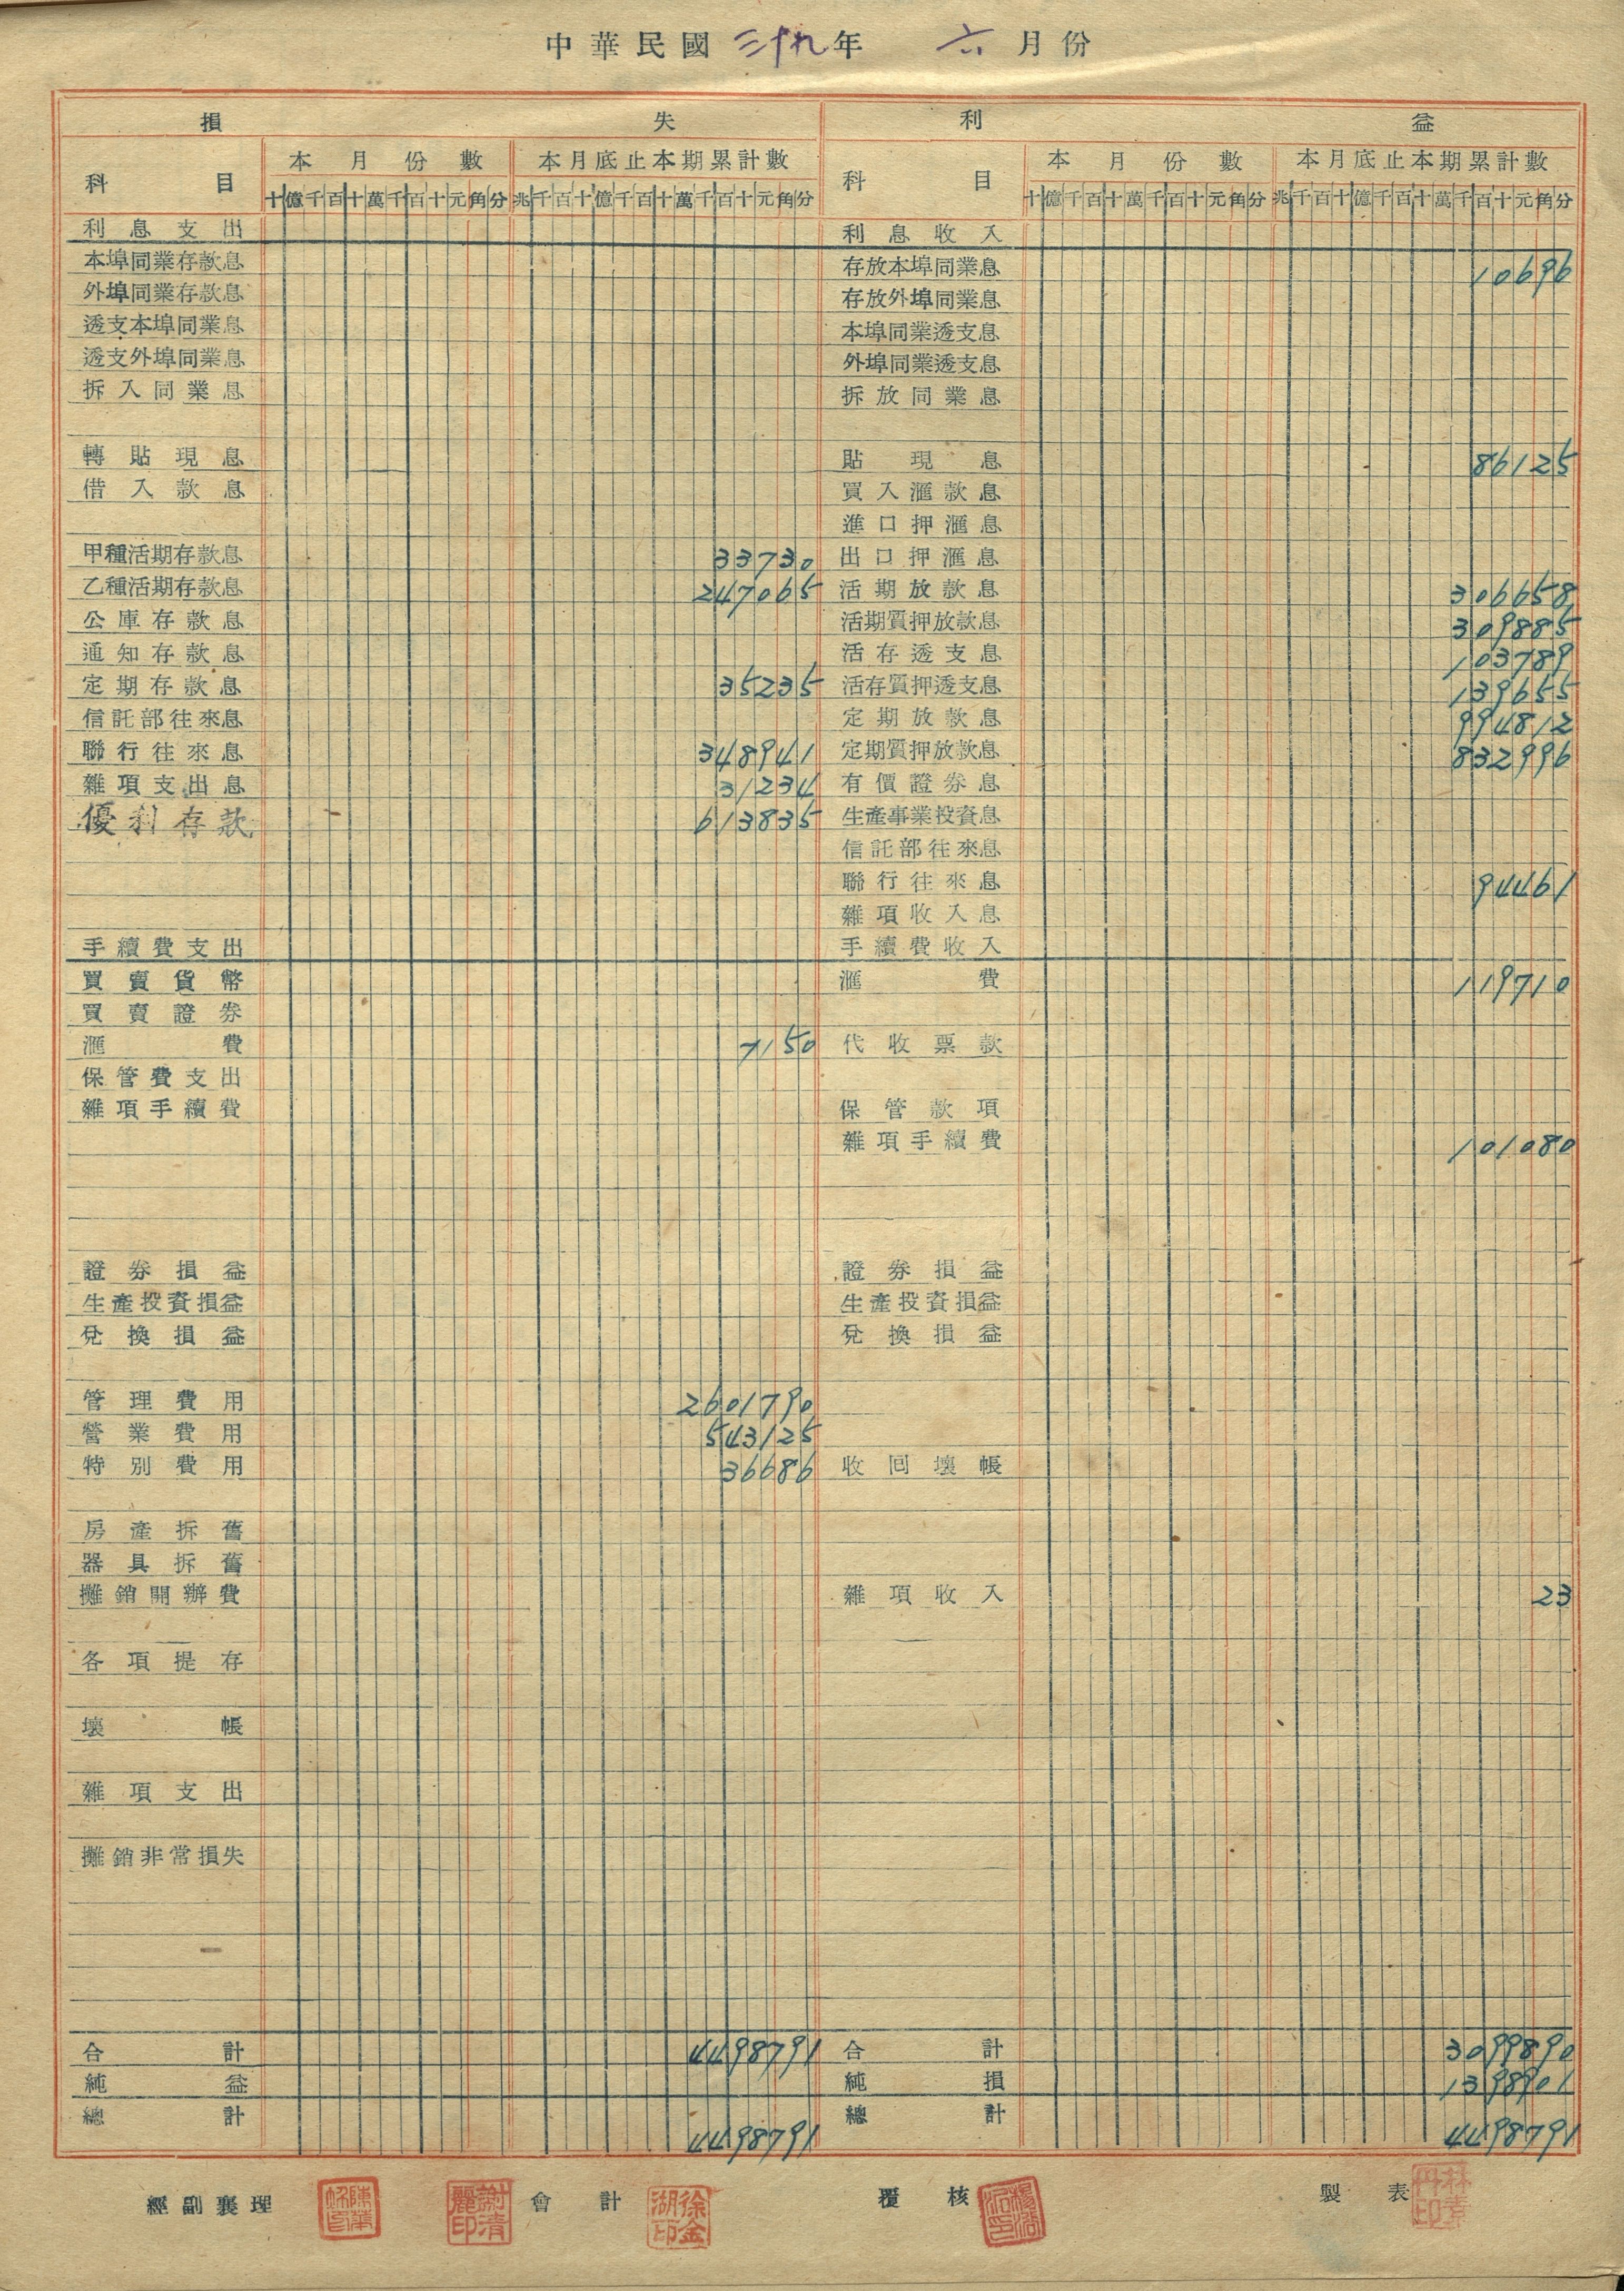 中華民國三十九年 六月份
損 失 利 益
科目 本月份數 本月底止本期累計數 科目 本月份數 本月底止本期累計數
十億千百十萬千百十元角分 兆千百十億千百十萬千百十元角分 十億千百十萬千百十元角分 兆千百十億千百十萬千百十元角分
利息支出 利息收入
本埠同業存款息 存放本埠同業息 10696
外埠同業存款息 存放外埠同業息
透支本埠同業息 本埠同業透支息
透支外埠同業息 外埠同業透支息
拆入同業息 拆放同業息
轉貼現息 貼現息 86125
借入款息 買入滙款息
進口押滙息
甲種活期存款息 33730 出口押滙息
乙種活期存款息 247065 活期放款息 306658
公庫存款息 活期質押放款息 309885
通知存款息 活存透支息 103789
定期存款息 35235 活存質押透支息 139655
信託部往來息 定期放款息 994812
聯行往來息 348941 定期質押放款息 832996
雜項支出息 31234 有價證券息
優利存款 613835 生產事業投資息
信託部往來息
聯行往來息 94461
雜項收入息
手續費支出 手續費收入
買賣貨幣 滙費 119710
買賣證券
滙費 7150 代收票款
保管費支出
雜項手續費 保管款項
雜項手續費 101080
證券損益 證券損益
生產投資損益 生產投資損益
兌換損益 兌換損益
管理費用 2601790
營業費用 543125
特別費用 36686 收回壞帳
房產拆舊
器具拆舊
攤銷開辦費 雜項收入 23
各項提存
壞帳
雜項支出
攤銷非常損失
合計 4498791 合計 3099890
純益 純損 1398901
總計 4498791 總計 4498791
經副襄理 謝清麗印 會計 徐金湖印 覆核 製表 林素丹印